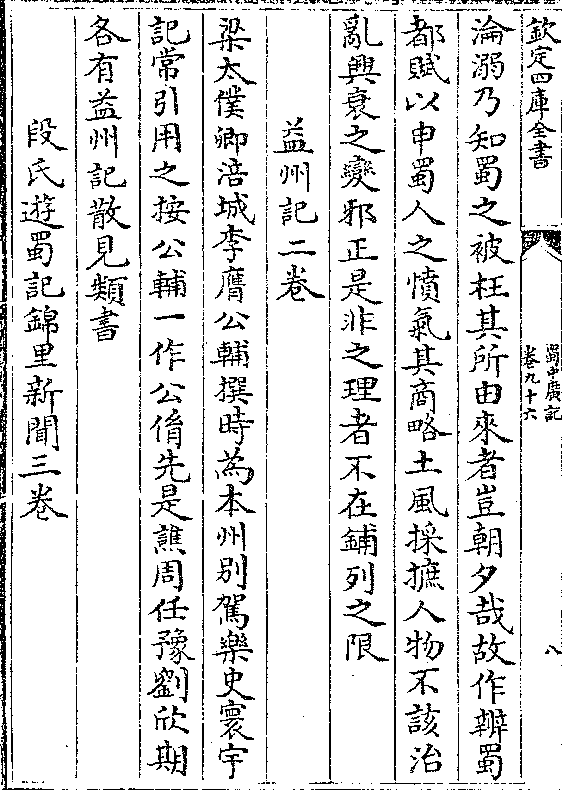 欽定四庫全書
蜀中廣記
卷九十六
八
淪溺乃知蜀之被枉其所由來者豈朝夕哉故作辨蜀
都賦以申蜀人之憤氣其商略土風採摭人物不該治
亂興衰之變邪正是非之理者不在鋪列之限
益州記二卷
梁太僕卿涪城李膺公輔撰時為本州别駕樂史寰宇
記常引用之按公輔一作公脩先是譙周任豫劉欣期
各有益州記散見類書
段氏遊蜀記錦里新聞三卷